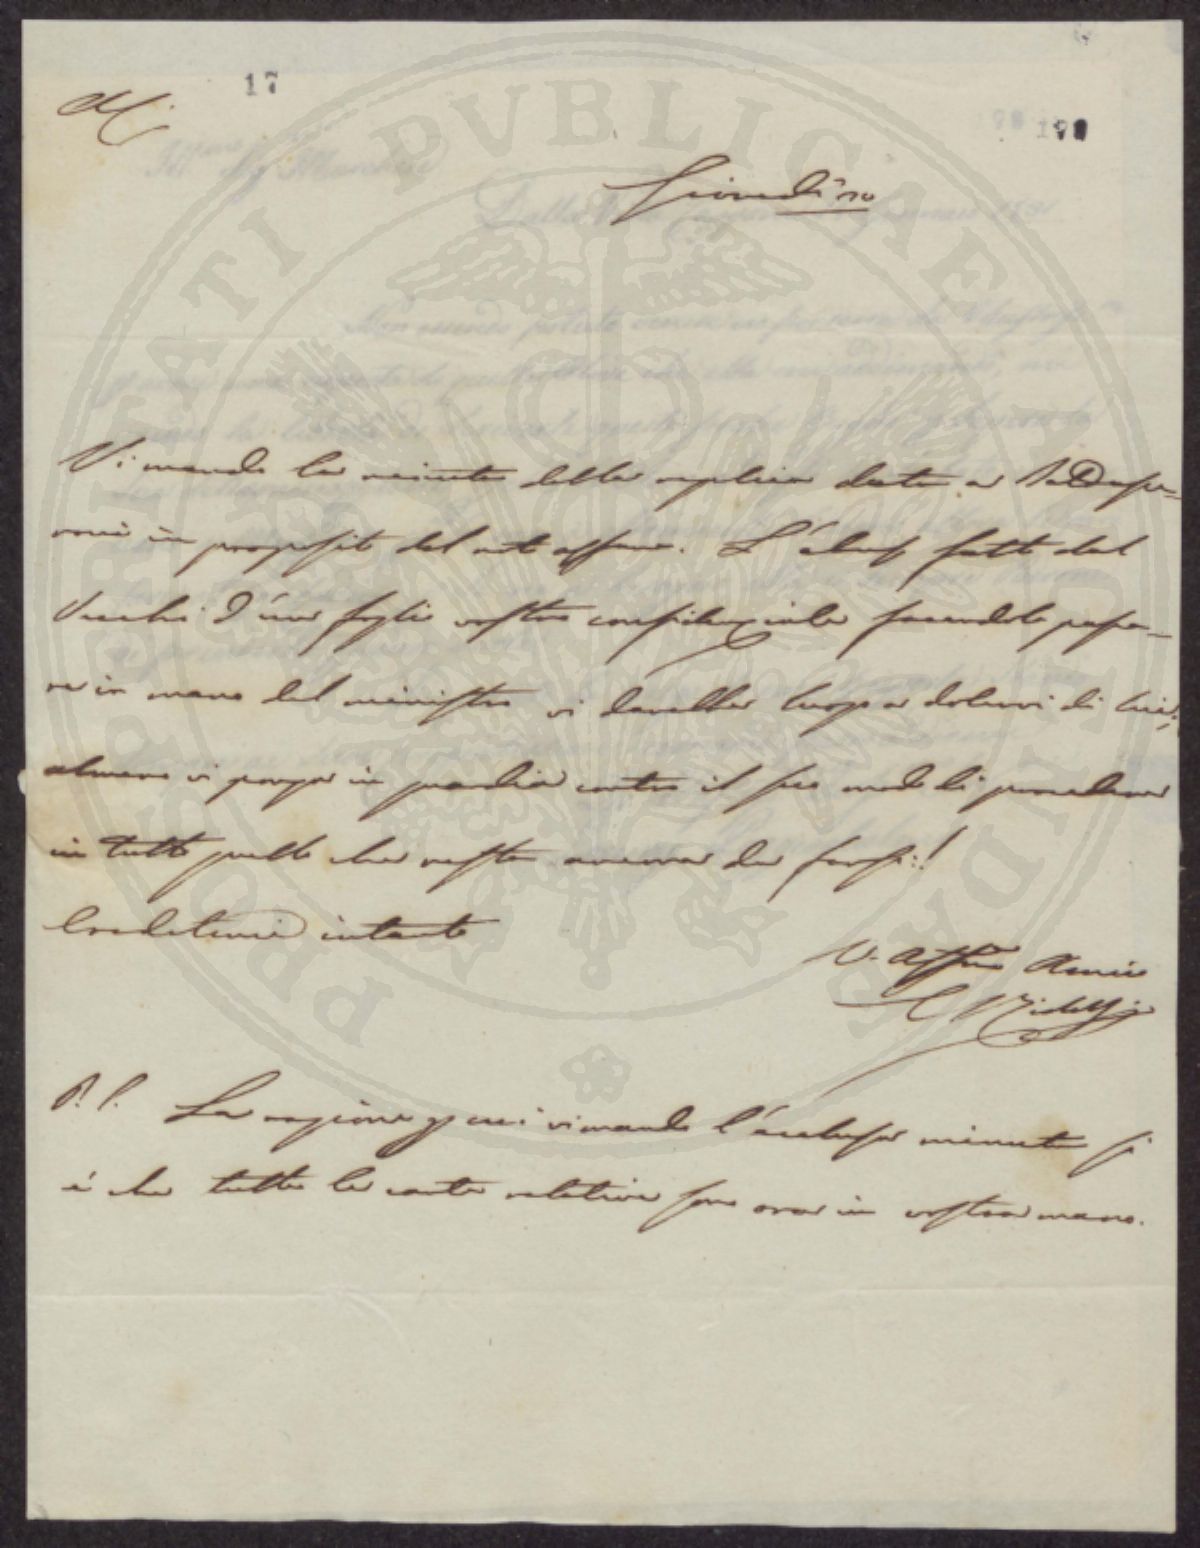 17
198
Giovedì 20
Vi mando la minuta della replica data a
in proposito del noto affare. L'abuso fatto dal
Vecchi d'un foglio vostro confidenziale facendolo passa-
re in mano del ministro vi darebbe luogo a dolervi di lui;
almeno vi ponga in guardia contro il suo modo di procedere
in tutto quello che resta ancora da farsi!
Credetemi intanto
V. Affmo Amico
P. S. La ragione per cui vi mando l'acclusa minuta si
è che tutte le carte relative sono ora in vostra mano.
PROSPERITATI PVBLICAE AVGENDAE